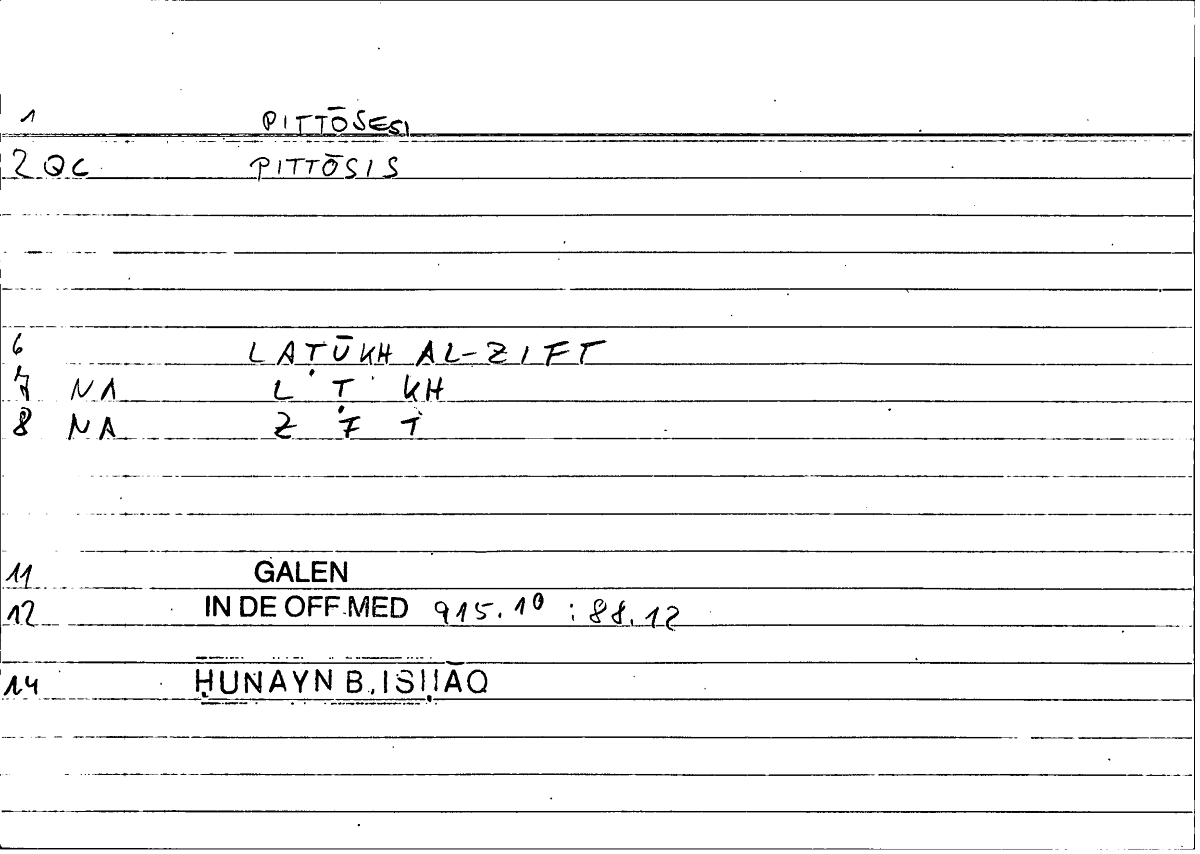 1 PITTŌSESI
2 QC PITTŌSIS
6 LAṬŪKH AL-ZIFT
7 NA L Ṭ KH
8 NA Z F T
11 GALEN
12 IN DE OFF.MED 915.10 : 88.12
14 ḤUNAYN B. ISḤĀQ